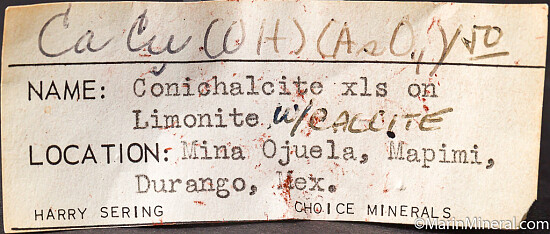 Ca Cu (OH) (AsO4) 50
NAME: Conichalcite xls on
Limonite w/CALCITE
LOCATION: Mina Ojuela, Mapimi,
Durango, Mex.
HARRY SERING CHOICE MINERALS
©MarinMineral.com